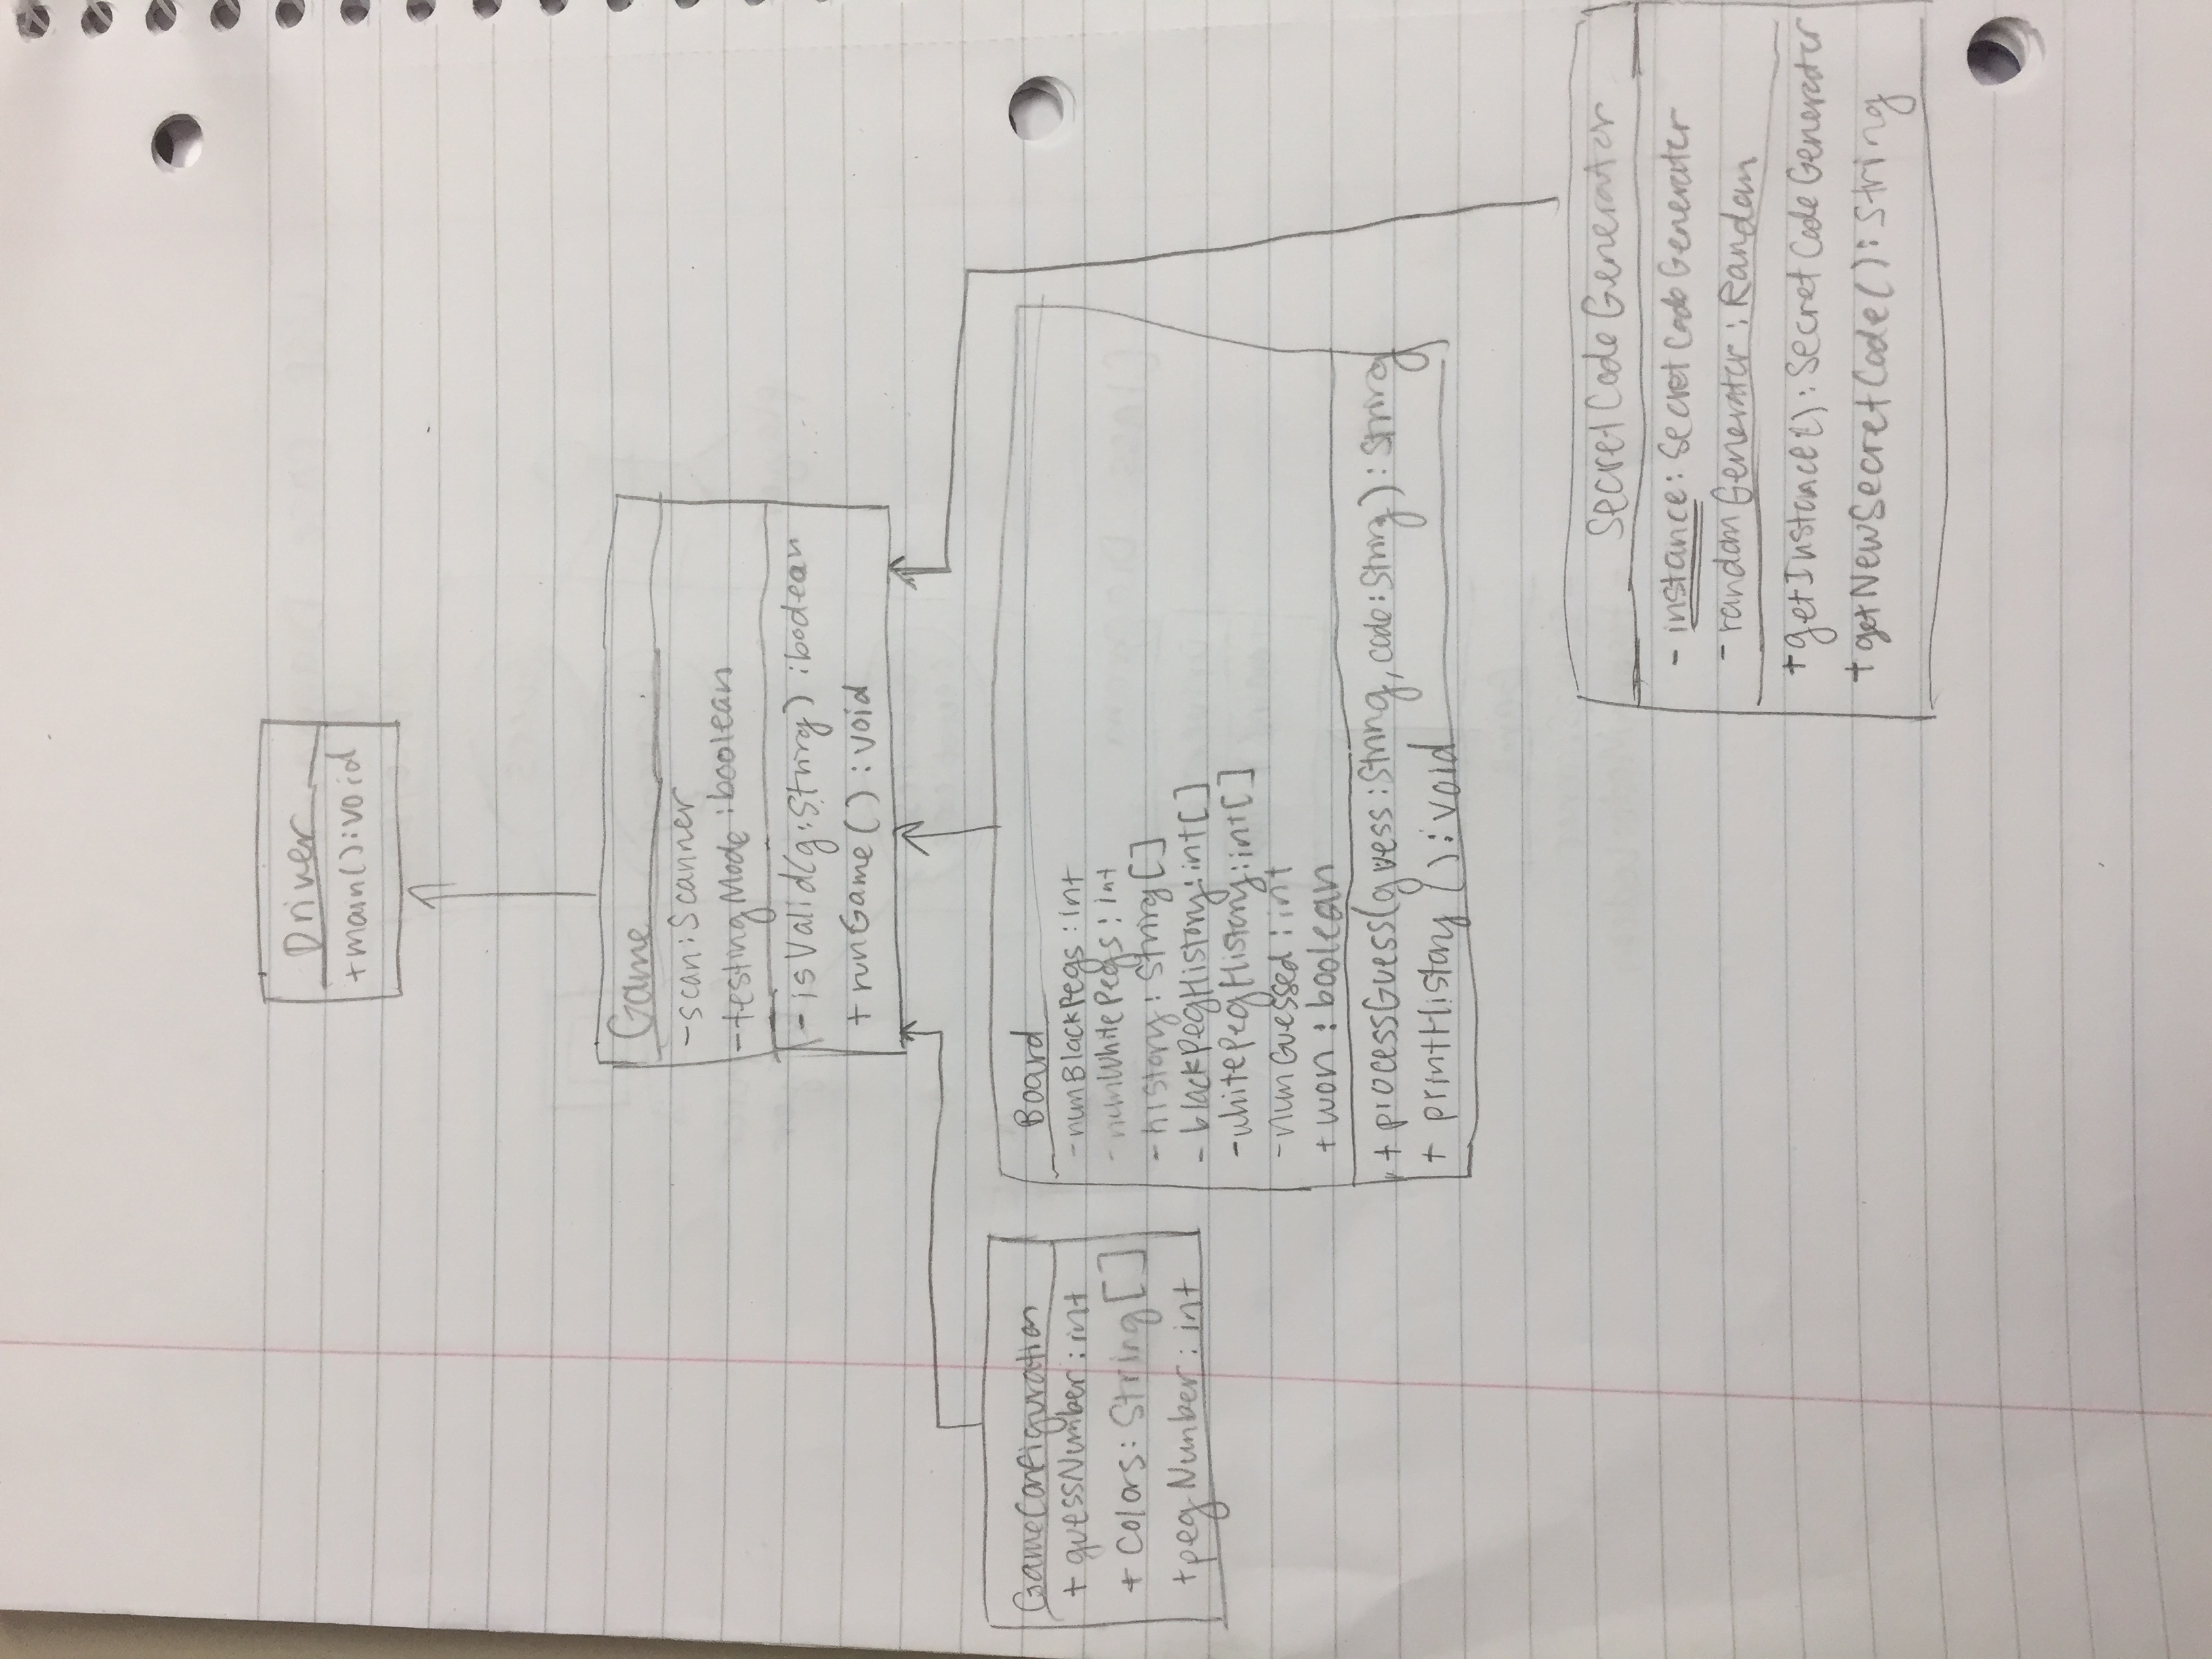 Driver
+main():void
Game
-scan:Scanner
-testingMode:boolean
-isValid(g:String):boolean
+runGame():void
GameConfiguration
+ guessNumber:int
+ Colors: String[]
+pegNumber: int
Board
-numBlackPegs:int
-numWhitePegs:int
-history: String[]
- blackPegHistory:int[]
-whitePegHistory:int[]
-numGuessed:int
+won:boolean
+ processGuess(guess:String, code:String): String
+ printHistory():void
SecretCodeGenerator
- instance: SecretCodeGenerator
-randomGenerator: Random
+getInstance(): SecretCodeGenerator
+getNewSecretCode(): String